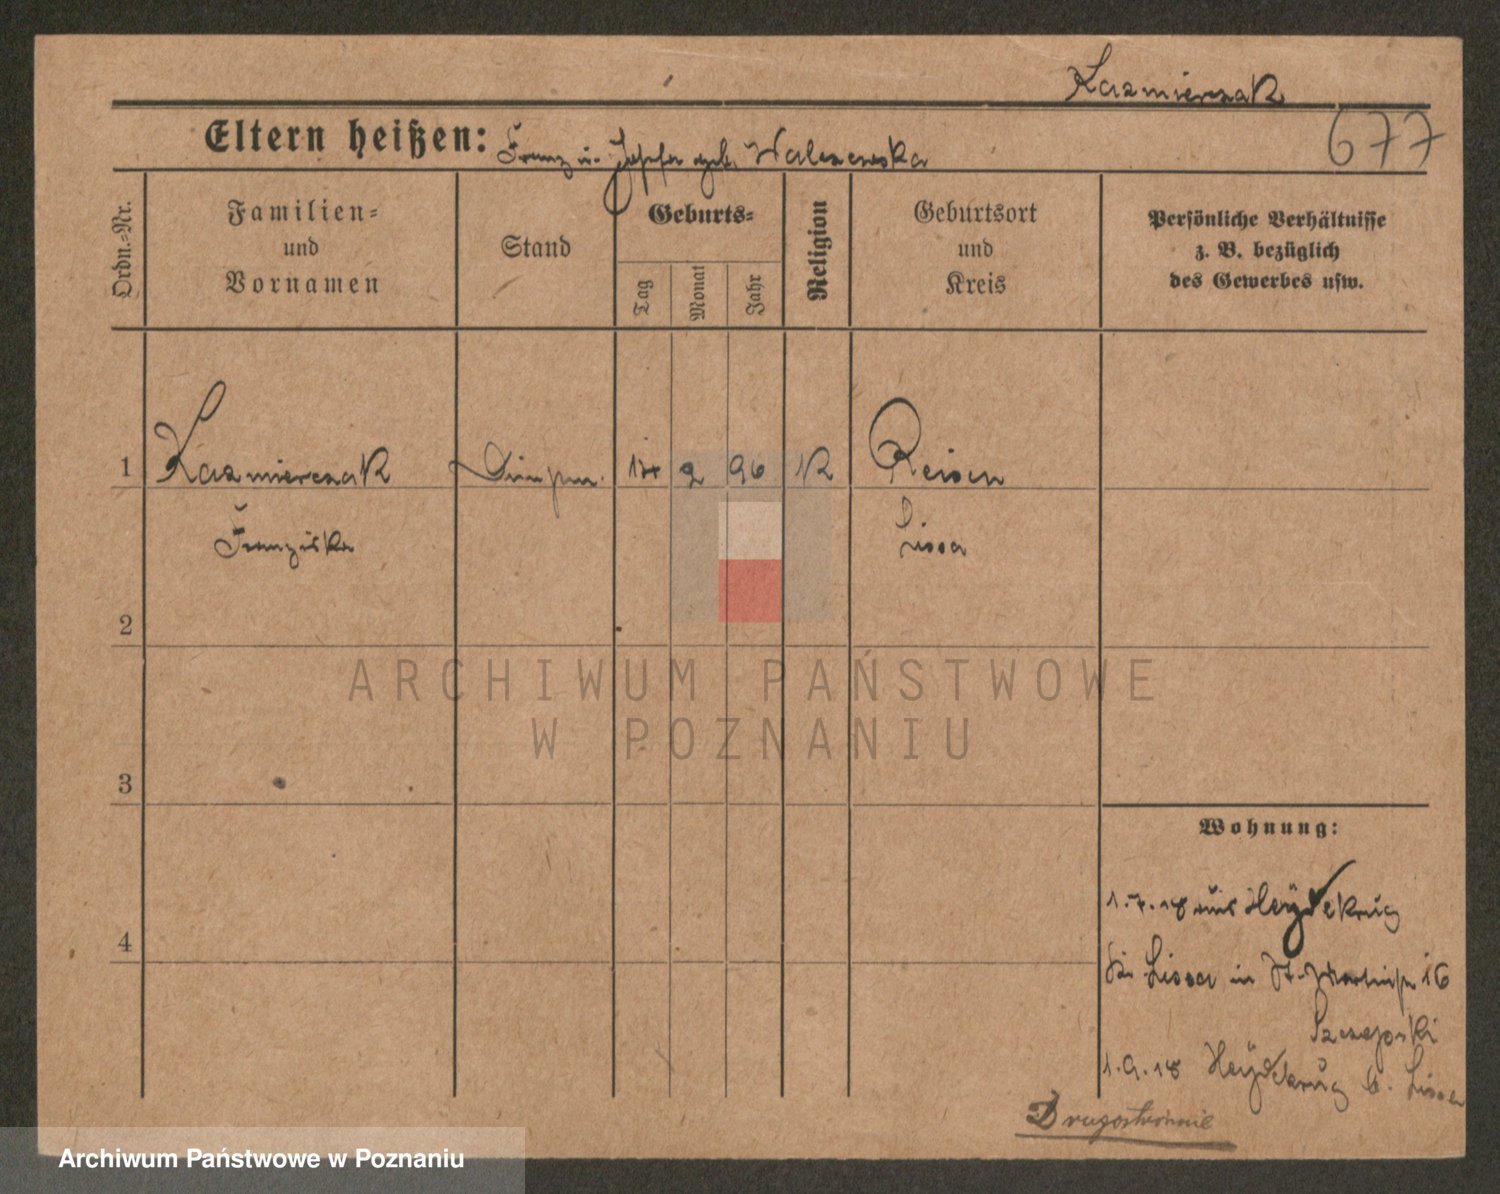 Kazmierczak
677
Eltern heißen: Franz u. Josefa geb. Walczewska
Ordn.=Nr.
Familien=
und
Vornamen
Stand
Geburts=
Tag
Monat
Jahr
Religion
Geburtsort
und
Kreis
Persönliche Verhältnisse
z. B. bezüglich
des Gewerbes usw.
1 Kazmierczak 2 96 K Reisen
Franziska Lissa
2
ARCHIWUM PAŃSTWOWE
W POZNANIU
3
Wohnung:
1.7.18 aus Heydekrug
4
Lissa in St. Martinstr 16
1.9.18 Heydekrug b. Lissa
Drugostronnie
Archiwum Państwowe w Poznaniu